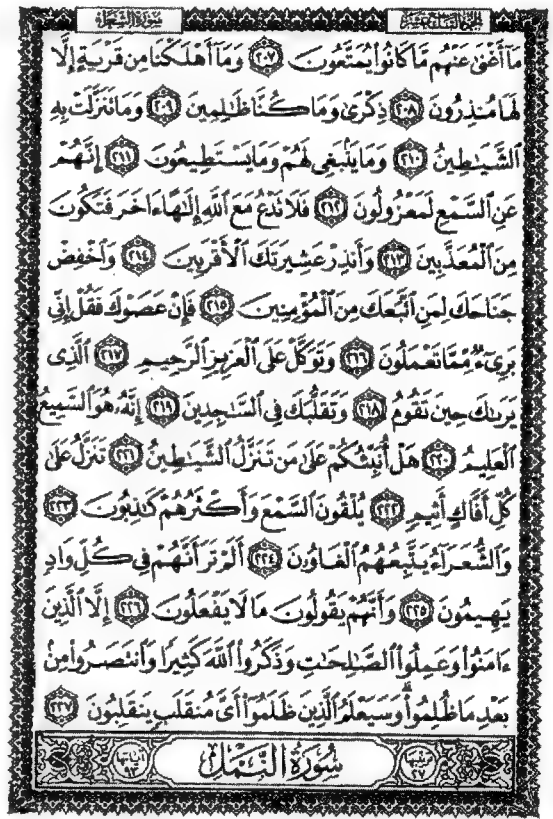 سُورَةُ الشُّعَرَاءِ
مَآ أَغْنَىٰ عَنْهُم مَّا كَانُوا۟ يُمَتَّعُونَ ٢٠٧ وَمَآ أَهْلَكْنَا مِن قَرْيَةٍ إِلَّا
لَهَا مُنذِرُونَ ٢٠٨ ذِكْرَىٰ وَمَا كُنَّا ظَـٰلِمِينَ ٢٠٩ وَمَا تَنَزَّلَتْ بِهِ
ٱلشَّيَـٰطِينُ ٢١٠ وَمَا يَنۢبَغِى لَهُمْ وَمَا يَسْتَطِيعُونَ ٢١١ إِنَّهُمْ
عَنِ ٱلسَّمْعِ لَمَعْزُولُونَ ٢١٢ فَلَا تَدْعُ مَعَ ٱللَّهِ إِلَـٰهًا ءَاخَرَ فَتَكُونَ
مِنَ ٱلْمُعَذَّبِينَ ٢١٣ وَأَنذِرْ عَشِيرَتَكَ ٱلْأَقْرَبِينَ ٢١٤ وَٱخْفِضْ
جَنَاحَكَ لِمَنِ ٱتَّبَعَكَ مِنَ ٱلْمُؤْمِنِينَ ٢١٥ فَإِنْ عَصَوْكَ فَقُلْ إِنِّى
بَرِىٓءٌ مِّمَّا تَعْمَلُونَ ٢١٦ وَتَوَكَّلْ عَلَى ٱلْعَزِيزِ ٱلرَّحِيمِ ٢١٧ ٱلَّذِى
يَرَىٰكَ حِينَ تَقُومُ ٢١٨ وَتَقَلُّبَكَ فِى ٱلسَّـٰجِدِينَ ٢١٩ إِنَّهُۥ هُوَ ٱلسَّمِيعُ
ٱلْعَلِيمُ ٢٢٠ هَلْ أُنَبِّئُكُمْ عَلَىٰ مَن تَنَزَّلُ ٱلشَّيَـٰطِينُ ٢٢١ تَنَزَّلُ عَلَىٰ
كُلِّ أَفَّاكٍ أَثِيمٍ ٢٢٢ يُلْقُونَ ٱلسَّمْعَ وَأَكْثَرُهُمْ كَـٰذِبُونَ ٢٢٣
وَٱلشُّعَرَآءُ يَتَّبِعُهُمُ ٱلْغَاوُۥنَ ٢٢٤ أَلَمْ تَرَ أَنَّهُمْ فِى كُلِّ وَادٍ
يَهِيمُونَ ٢٢٥ وَأَنَّهُمْ يَقُولُونَ مَا لَا يَفْعَلُونَ ٢٢٦ إِلَّا ٱلَّذِينَ
ءَامَنُوا۟ وَعَمِلُوا۟ ٱلصَّـٰلِحَـٰتِ وَذَكَرُوا۟ ٱللَّهَ كَثِيرًا وَٱنتَصَرُوا۟ مِنۢ
بَعْدِ مَا ظُلِمُوا۟ ۗ وَسَيَعْلَمُ ٱلَّذِينَ ظَلَمُوٓا۟ أَىَّ مُنقَلَبٍ يَنقَلِبُونَ ٢٢٧
سُورَةُ ٱلنَّمْلِ